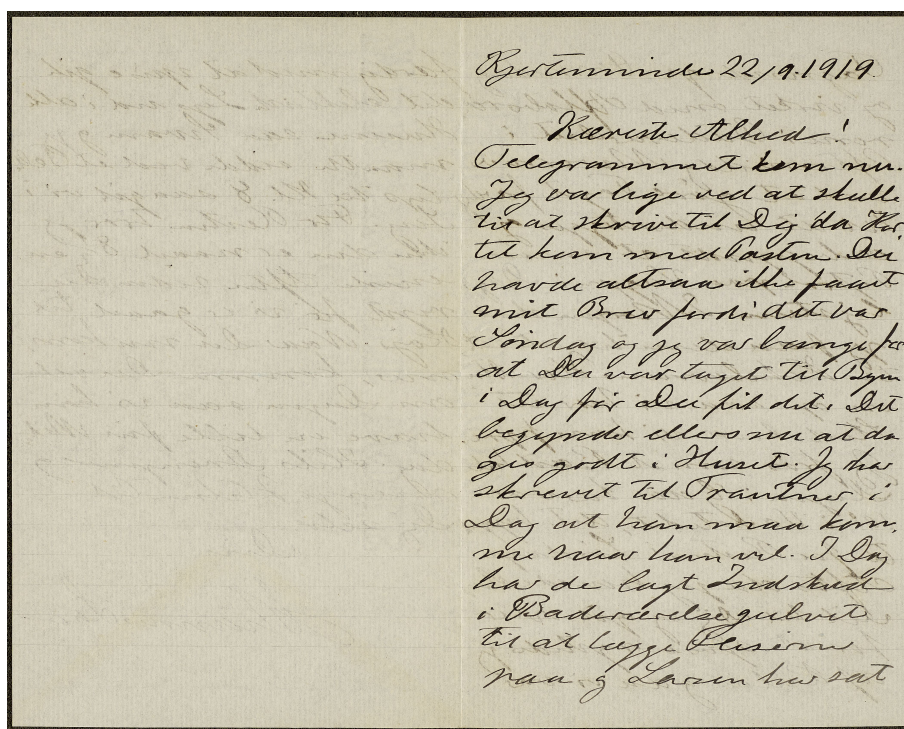 Kjerteminde 22/9.1919.
Kæreste Alhed!
Telegrammet kom nu.
Jeg var lige ved at skulle
til at skrive til Dig da Kor
tet kom med Posten. Du
havde altsaa ikke faaet
mit Brev fordi det var
Søndag og jeg var bange for
at Du var taget til Byen
i Dag før Du fik det. Det
begynder ellers nu at da
ges godt i Huset. Jeg har
skrevet til Trautner i
Dag at han maa kom,
me naar han vil. I Dag
har de lagt Indskud
i Badeværelsegulvet
til at lægge Fliserne
paa og Larsen har sat